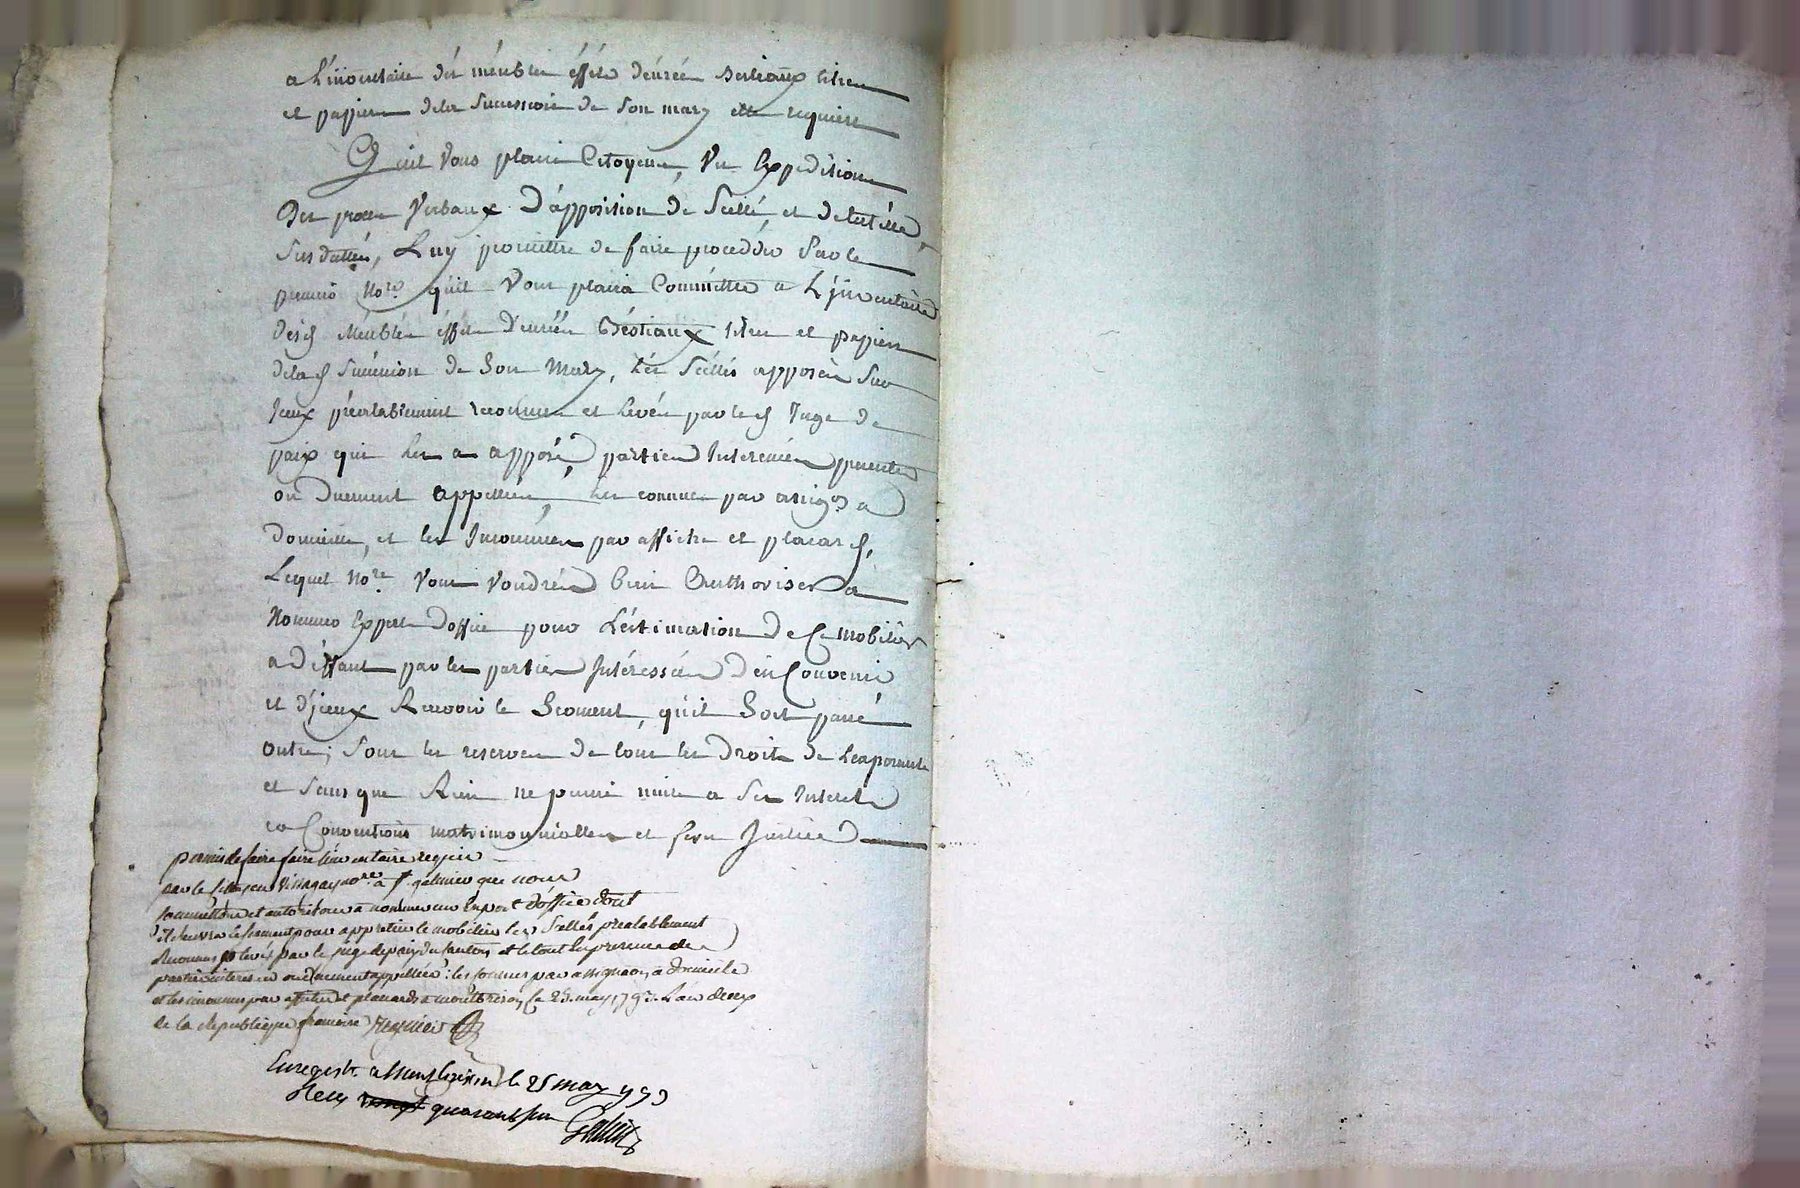 a L'inventaire des méubles éffets denrées bestiaux titres
et papiers dela succession de son mary elle requiert
Quil vous plaise Citoyens, Vu Expeditions
Des procès Verbaux D'apposition de Scellé, et de tutéle,
Sus datteés, Luy permettre de faire proceddér par le
premier No.re quil vous plaira Commettre a L'jnventaire
desd. Méubles éffets denrées Béstiaux titres et papiers
delad. Succession de Son Mary, Les Scéllés apposés Sur
Iceux préalablement reconnus et Levés par led. Juge de
paix qui Les a apposé, parties Interesseés presentes
ou Duement appelleés, les connues par assig.on a
Domicile, et les Inconnues par affiche et placard,
Lequel No.re Vous Voudrés bien Authoriser a
Nommer Expert Doffice pour L'estimation De Ce mobilier
a deffaut par les parties Intéressées D'en Convenir
et D'jceux Recevoir le Serment, quil Soit passé
outre, Sous les reserves de tous les Droits de Lexposante
et Sans que Rien ne puisse nuire a Ses Interets
et Conventions matrimonialles et fera Justice
permis de faire faire linventaire requis
par le Citoyen no.re a St. galmier que nous
commettons et autorisons a nommer un Expert d'office dont
il recevra le serment pour appretier le mobilier les Scellés prealablement
reconnus et levés par le juge de paix du canton et le tout en presence des
parties interessées ou duement appellées: les connues par assignaon a domicile
et les inconnus par affiches et placards a montbrison Ce 25. may 1793. L'an deux
de la republique francaise
Enregist. a Montbrison le 25 may 1793
Recu quarante sou